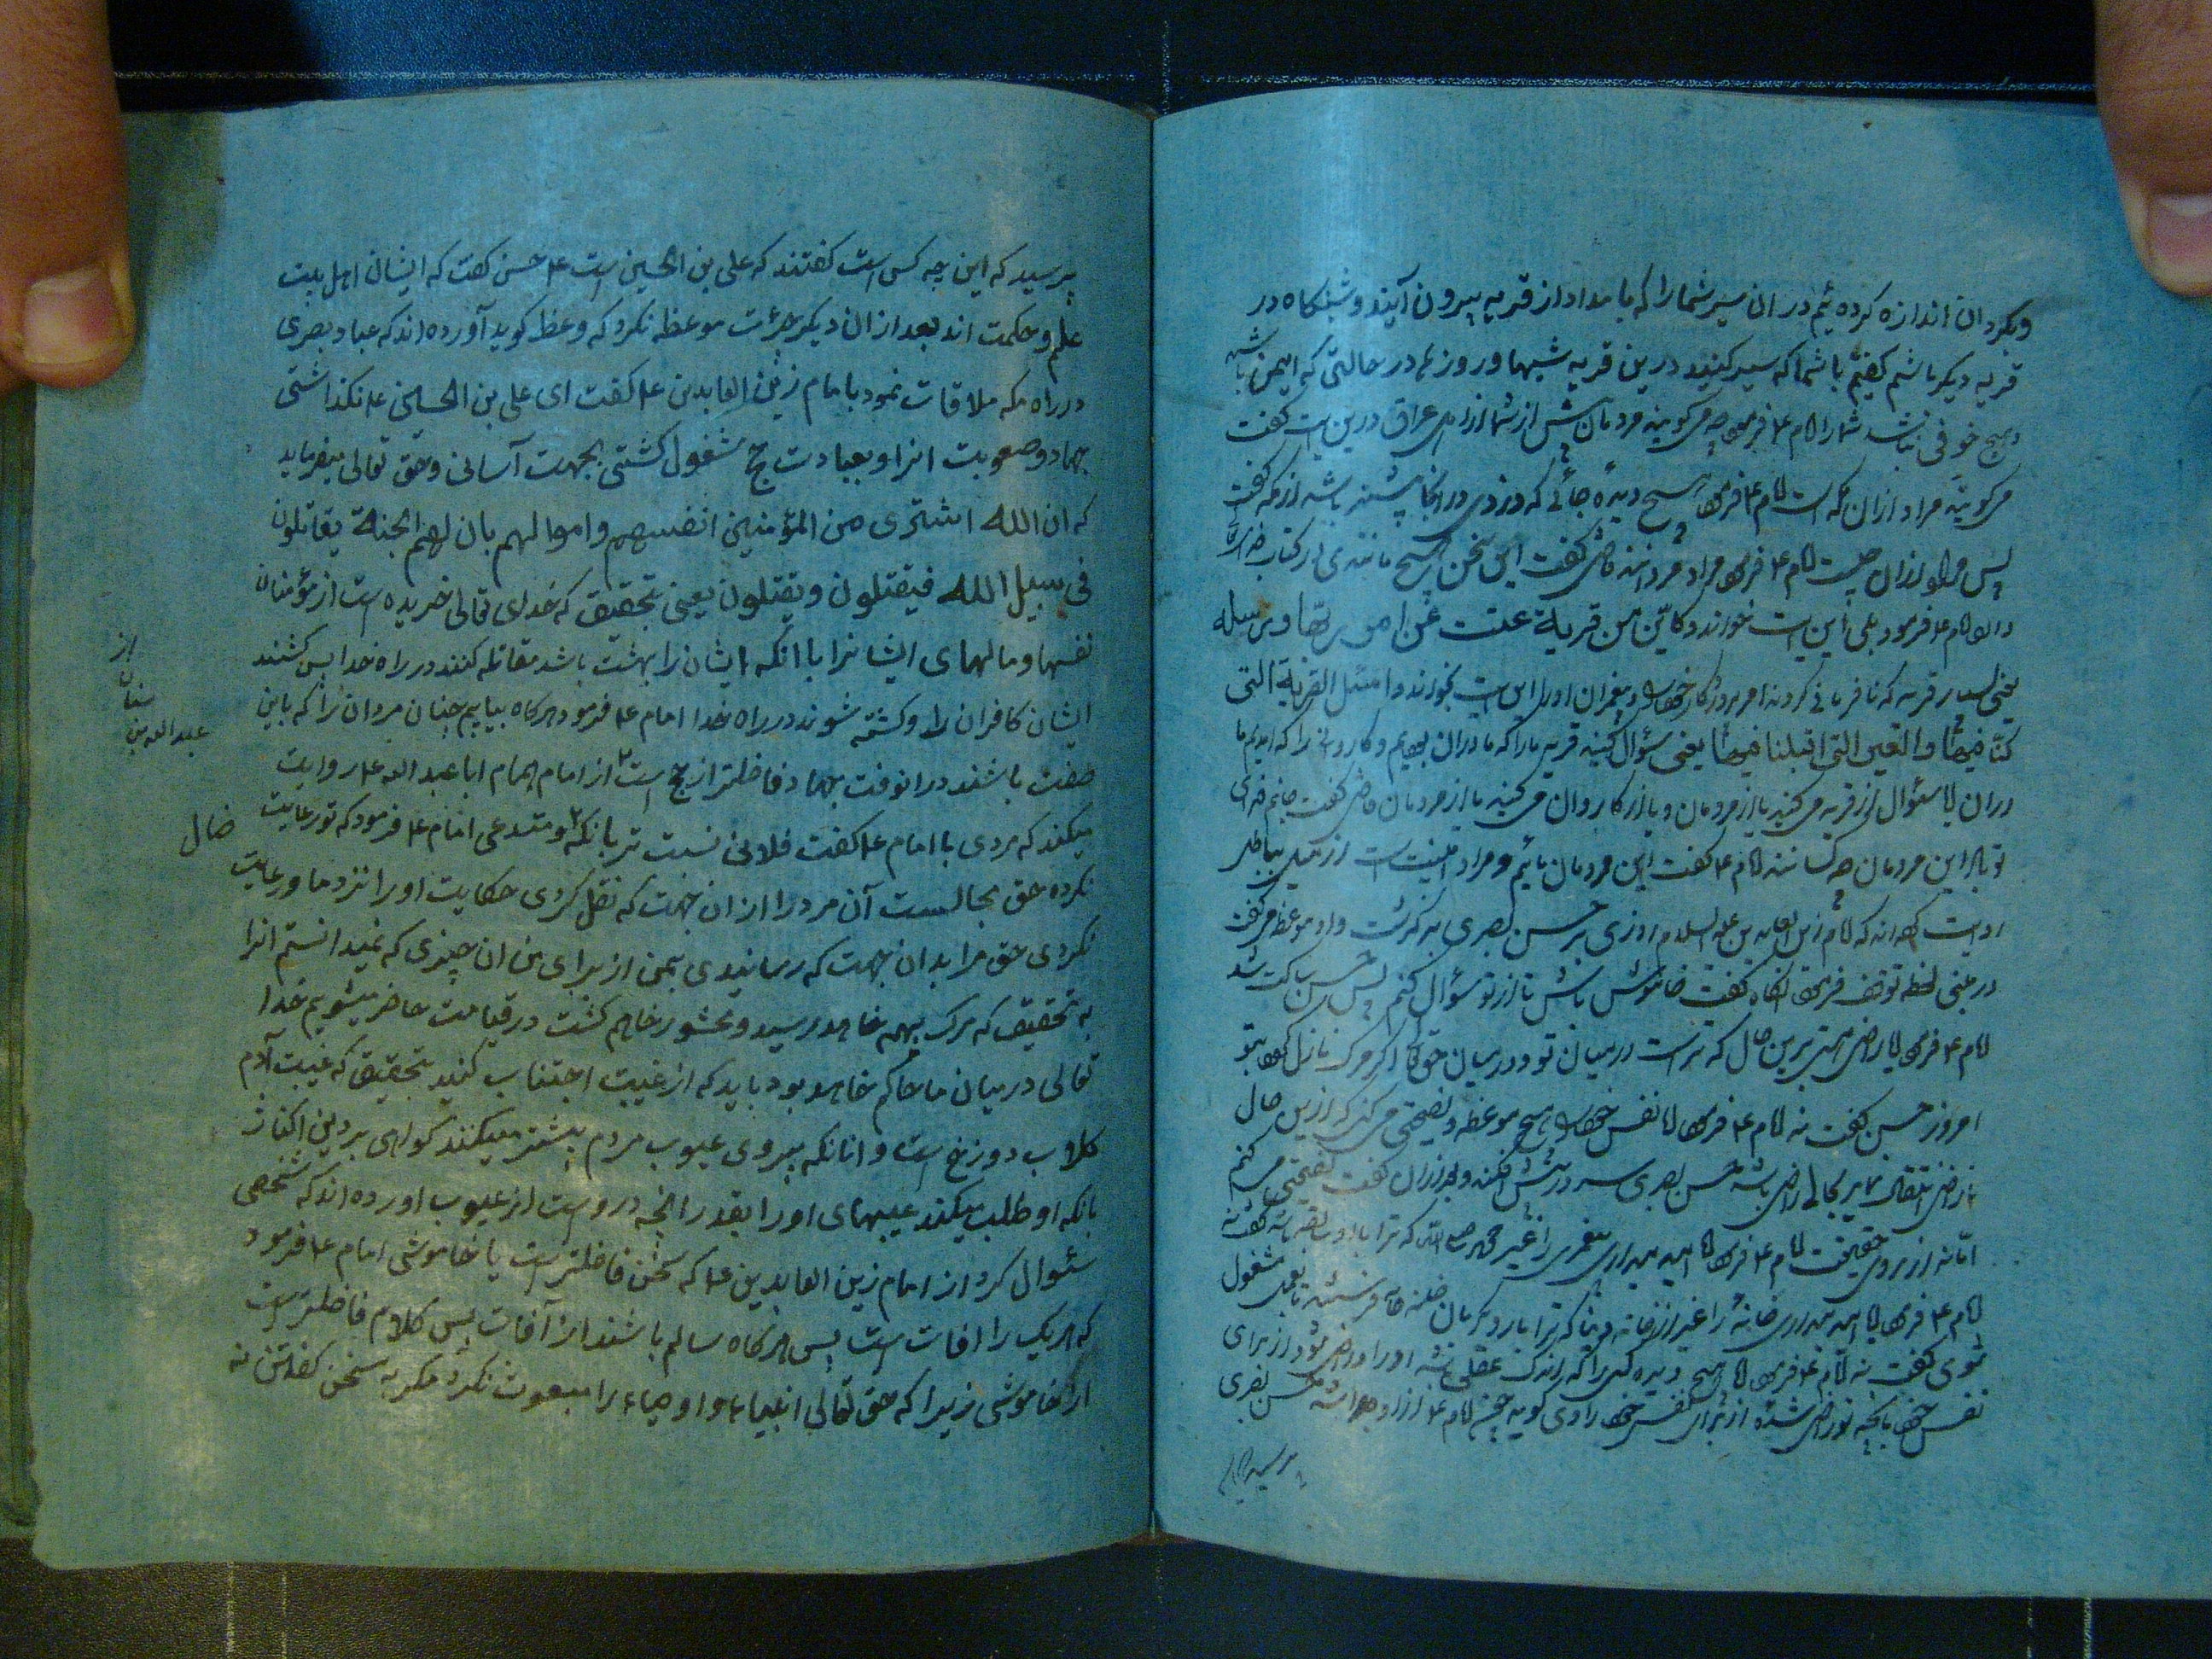 وبکردان اندازه کرده ئیم در ان سیر شما را که بامداد از قریه بیرون آیند و شبنکاه در
قریه دیکر باشم کفتیم با شما که سیر کنید درین قریه شبها و روزها در حالتی که ایمن باشید
و هیچ خوفی نباشد شما را امام ع فرمود چه میکویند مردمان پیش از شما از اهل عراق درین است کفت
میکویند مراد از ان مکه است امام ع فرمود هیچ دیده جائی که دزدی در انجا بیشتر باشد از مکه کفت
پس مراد از ان چیست امام ع فرمود مراد مردانند قاضی کفت این سخن هیچ مانندی از کتاب خدا
دارد امام ع فرمود بلی این است خواند وکاین من قریة عتت عن امر ربها ورسله
یعنی بسیار قریه که نافرمانی کردند امر پروردکار خود و پیغمبران او را این است بخواند واسئل القریة التی
کنّا فیها والعیر التی اقبلنا فیها یعنی سؤال کنید قریه را که ما در ان بودیم و کاروانی را که آمدیم ما
در ان ایا سئوال از قریه میکنید یا از مردمان و یا از کاروان میکنید یا از مردمان قاضی کفت جانم فدای
تو باد این مردمان چه کسانند امام ع کفت این مردمان مائیم و مراد امنیت است از میل بباطل
روایت کرده اند که امام زین العابدین علیه السلام روزی بر حسن بصری بکذشت و او موعظه میکفت
در منی لحظه توقف فرمود انکاه کفت خاموش باش تا از تو سؤال کنم پس حسن ساکت شد
امام ع فرمود ایا راضی هستی برین حال که تراست درمیان تو و درمیان حقتعالی اکر مرک نازل کردد بتو
امروز حسن کفت نه امام ع فرمود ایا نفس خود را هیچ موعظه و نصیحتی میکنی که ازین حال
ناراضی انتقال نماید بحالی راضی باشد حسن بصری سر در پیش افکند و بعد از ان کفت نصیحتی میکنم
امّا نه از روی حقیقت امام ع فرمود ایا امید میداری پیغمبری را غیر محمد ص که ترا با او سابقه باشد کفت نه
امام ع فرمود ایا امید میداری خانهٔ را غیر از خانه دنیا که ترا بار دیکر بان خانه فرستند تا بعمل مشغول
شوی کفت نه امام ع فرمود ایا هیچ دیده کسی را که اندک عقلی باشد او را و راضی شود از برای
نفس خود بانچه تو راضی شده از برای نفس خود راوی کوید چون امام ع از او جدا شد حسن بصری
پرسید که این
پرسید که این چه کس است کفتند که علی بن الحسین است ع حسن کفت که ایشان اهل بیت
علم و حکمت اند بعد از ان دیکر جرئت موعظه نکرد که وعظ کوید آورده اند که عباد بصری
در راه مکه ملاقات نمود با امام زین العابدین ع کفت ای علی بن الحسین ع نکذاشتی
جهاد و صعوبت انرا و بعبادت حج مشغول کشتی بجهت آسانی و حق تعالی میفرماید
که ان الله اشتری من المؤمنین انفسهم واموالهم بان لهم الجنة یقاتلون
فی سبیل الله فیقتلون ویقتلون یعنی بتحقیق که خدای تعالی خریده است از مؤمنان
نفسها و مالهای ایشانرا با انکه ایشان را بهشت باشد مقاتله کنند در راه خدا پس کشند
ایشان کافران را و کشته شوند در راه خدا امام ع فرمود هرکاه بیابیم چنان مردان را که باین
صفت باشند در انوقت جهاد فاضلتر از حج است از امام الهمام ابا عبد الله ع روایت
میکند که مردی با امام ع کفت فلانی نسبت تر بانکه و متدعی امام ع فرمود که تو رعایت
نکرده حق مجالست آن مرد را از ان جهت که نقل کردی حکایت او را نزد ما و رعایت
نکردی حق مرا بدان جهت که رسانیدی بمن از برای من ان چیزی که نمیدانستم انرا
بتحقیق که مرک بهمه خاهد رسید و محشور خاهم کشت در قیامت حاضر میشویم خدا
تعالی درمیان ما حاکم خاهد بود باید که از غیبت اجتناب کنید بتحقیق که غیبت آدم
کلاب دوزخ است و انانکه پیروی عیوب مردم بیشتر میکنند کواهی بردین اکثار
بانکه او طلب میکند عیبهای او را بقدر انچه در وست از عیوب اورده اند که شخصی
سئوال کرد از امام زین العابدین ع که سخن فاضلتر است یا خاموشی امام ع فرمود
که هر یک را افات است پس هرکاه سالم باشند از آفات پس کلام فاضلتر است
از خاموشی زیرا که حق تعالی انبیاء و اوصیاء را مبعوث نکرد مکر به سخن کفتن نه
از
سنان
عبد الله بن
ضال